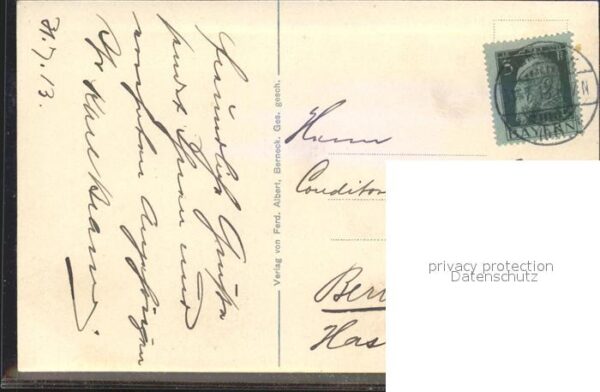 31.7.13.
Freundliche Grüße
sendet Ihnen und
werten Angehörigen
Ihr Karl
Verlag von Ferd. Albert, Berneck. Ges. gesch.
5
BAYERN
Herrn
Conditor
Ber
Has
privacy protection
Datenschutz